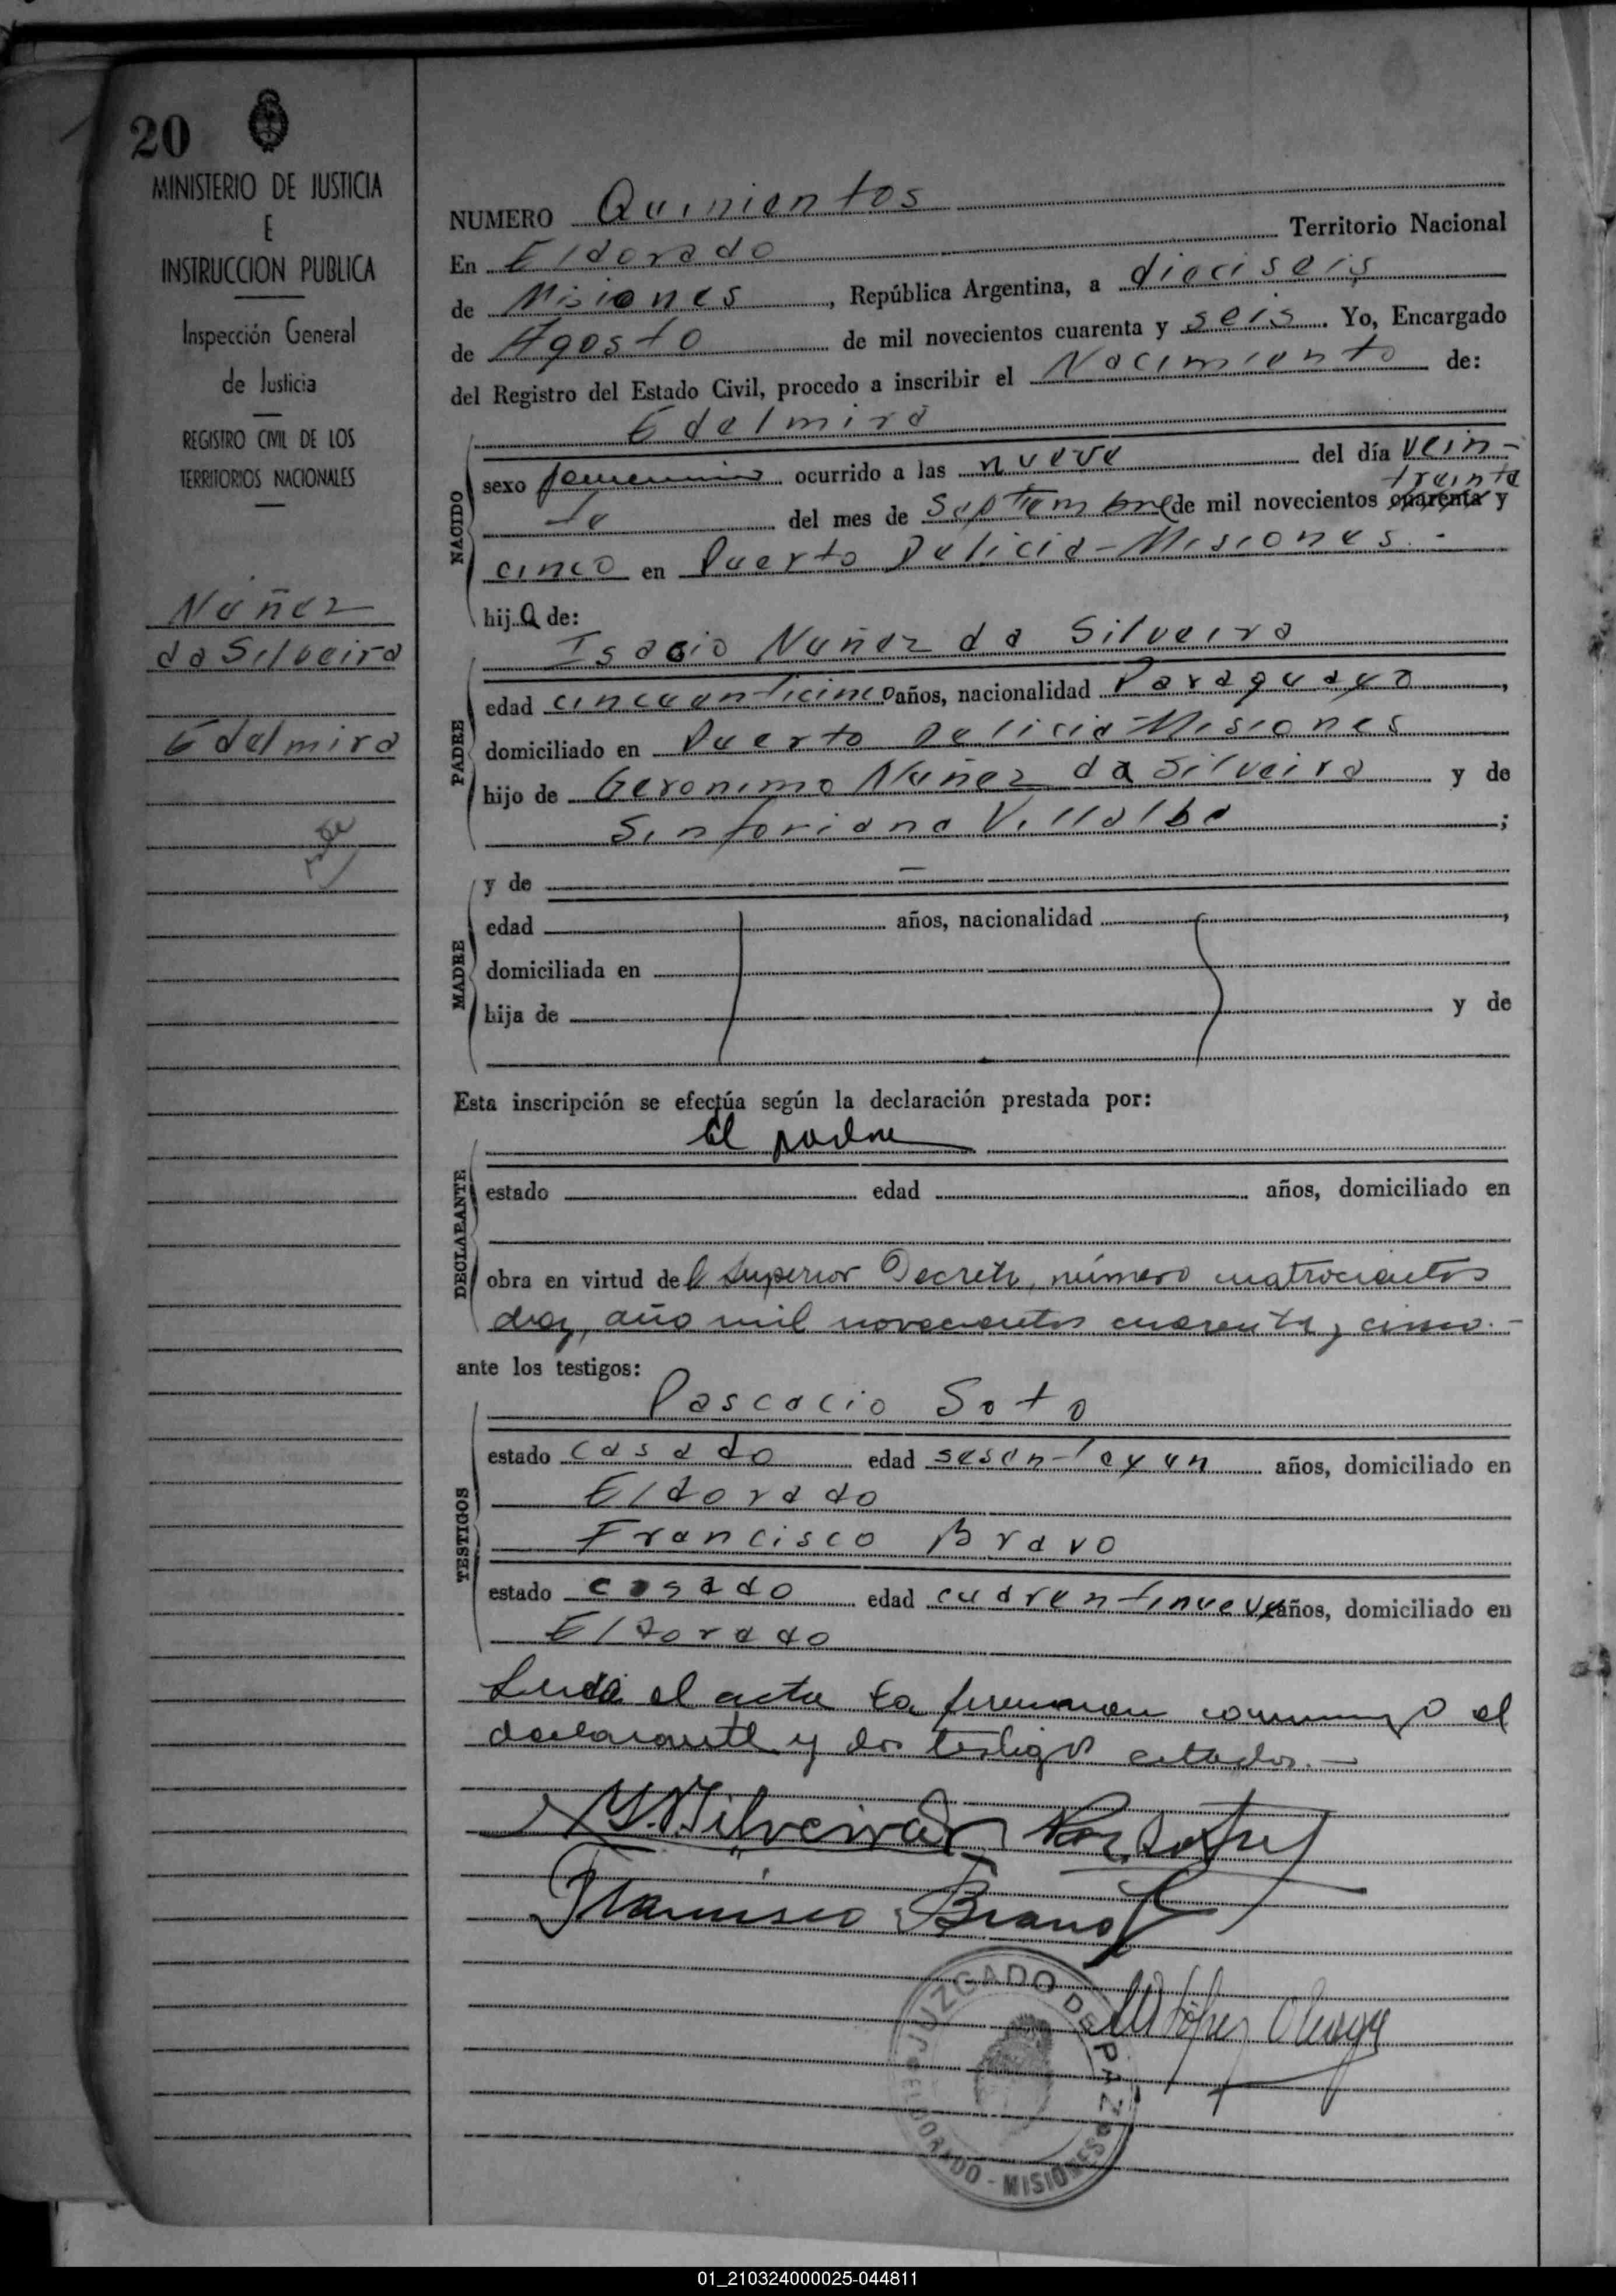 20
MINISTERIO DE JUSTICIA
E
INSTRUCCION PUBLICA
Inspección General
de Justicia
REGISTRO CIVIL DE LOS
TERRITORIOS NACIONALES
Nuñez
da Silveira
Edelmira
NUMERO Quinientos
En Eldorado Territorio Nacional
de Misiones, República Argentina, a dieciseis
de Agosto de mil novecientos cuarenta y seis. Yo, Encargado
del Registro del Estado Civil, procedo a inscribir el Nacimiento de:
Edelmira
NACIDO
sexo femenino ocurrido a las nueve del día vein-
treinta
te del mes de Septiembre de mil novecientos cuarenta y
cinco en Puerto Delicia-Misiones.-
hija de:
Isacio Nuñez da Silveira
PADRE
edad cincuenticinco años, nacionalidad Paraguayo,
domiciliado en Puerto Delicia-Misiones
hijo de Geronimo Nuñez da Silveira y de
Sinforiana Villalba;
y de —
MADRE
edad años, nacionalidad ,
domiciliada en
hija de y de
Esta inscripción se efectúa según la declaración prestada por:
el padre
DECLARANTE
estado edad años, domiciliado en
obra en virtud del Superior Decreto, número cuatrocientos
diez, año mil novecientos cuarenta y cinco.-
ante los testigos:
Pascacio Soto
TESTIGOS
estado casado edad sesentayun años, domiciliado en
Eldorado
Francisco Bravo
estado casado edad cuarentinueve años, domiciliado en
Eldorado
Leida el acta la firmaron conmigo el
declarante y los testigos citados.-
Silveira
Francisco Bravo
JUZGADO DE PAZ
ELDORADO - MISIONES
01_210324000025-044811